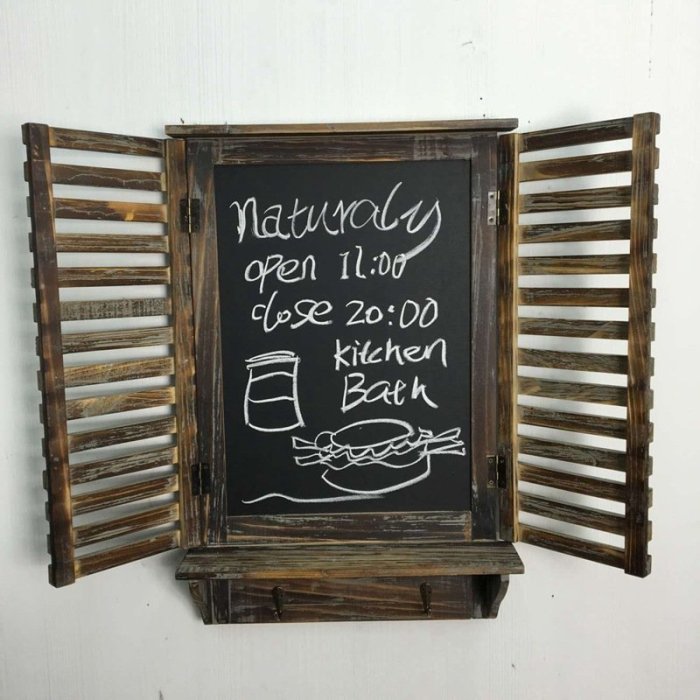 naturaly
open 11:00
close 20:00
kitchen
Bath